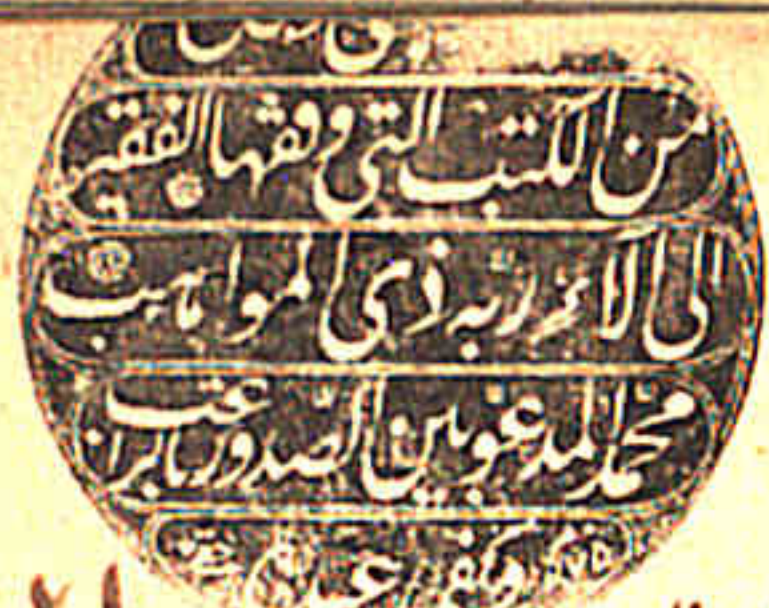 من الكتب التي وقفها الفقير
الى آلاء ربه ذي المواهب
محمد المدعو بين الصدور بالراغب
وكفى عبده